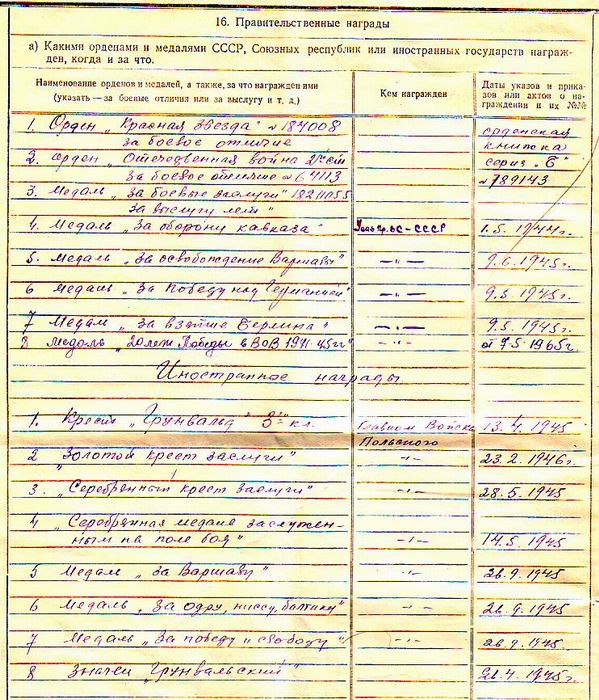 16. Правительственные награды
а) Какими орденами и медалями СССР, Союзных республик или иностранных государств награж-
ден, когда и за что.
Наименование орденов и медалей, а также, за что награжден ими
(указать — за боевые отличия или за выслугу и т. д.)
Кем награжден
Даты указов и прика-
зов или актов о на-
граждении и их №№
1. Орден „Красная звезда" № 187008
за боевое отличие
орденская
книжка
2. орден „Отечественная война 2й ст
серия „Б"
за боевое отличие № 64113
№ 789143
3. Медаль „За боевые заслуги"
за выслугу лет"
4. Медаль „За оборону кавказа"
СССР
1.5.1944г.
5. Медаль „За освобождение Варшавы"
— „ —
9.6.1945г.
6 медаль „За Победу над Германией"
— „ —
9.5 1945г.
7 Медаль „За взятие Берлина"
— „ —
9.5 1945г.
8 медаль „20 лет Победы в ВОВ 1941-45гг"
— „ —
от 7.5.1965г.
Иностранные награды
1. Крест „Грунвальд" 3й кл.
Главком Войска
13.4.1945
Польского
2 „Золотой крест заслуги"
— „ —
23.2.1946г.
3. „Серебренный крест заслуги"
— „ —
28.5.1945
4 „Серебрянная медаль заслужен-
ным на поле боя"
— „ —
14.5.1945
5 Медаль „за Варшаву"
— „ —
26.9.1945
6 Медаль „за одру, ниссу, балтику"
— „ —
26.9.1945
7 Медаль „За победу и свободу"
— „ —
26.9.1945
8 Значек „Грунвальский"
21.4.1945г.